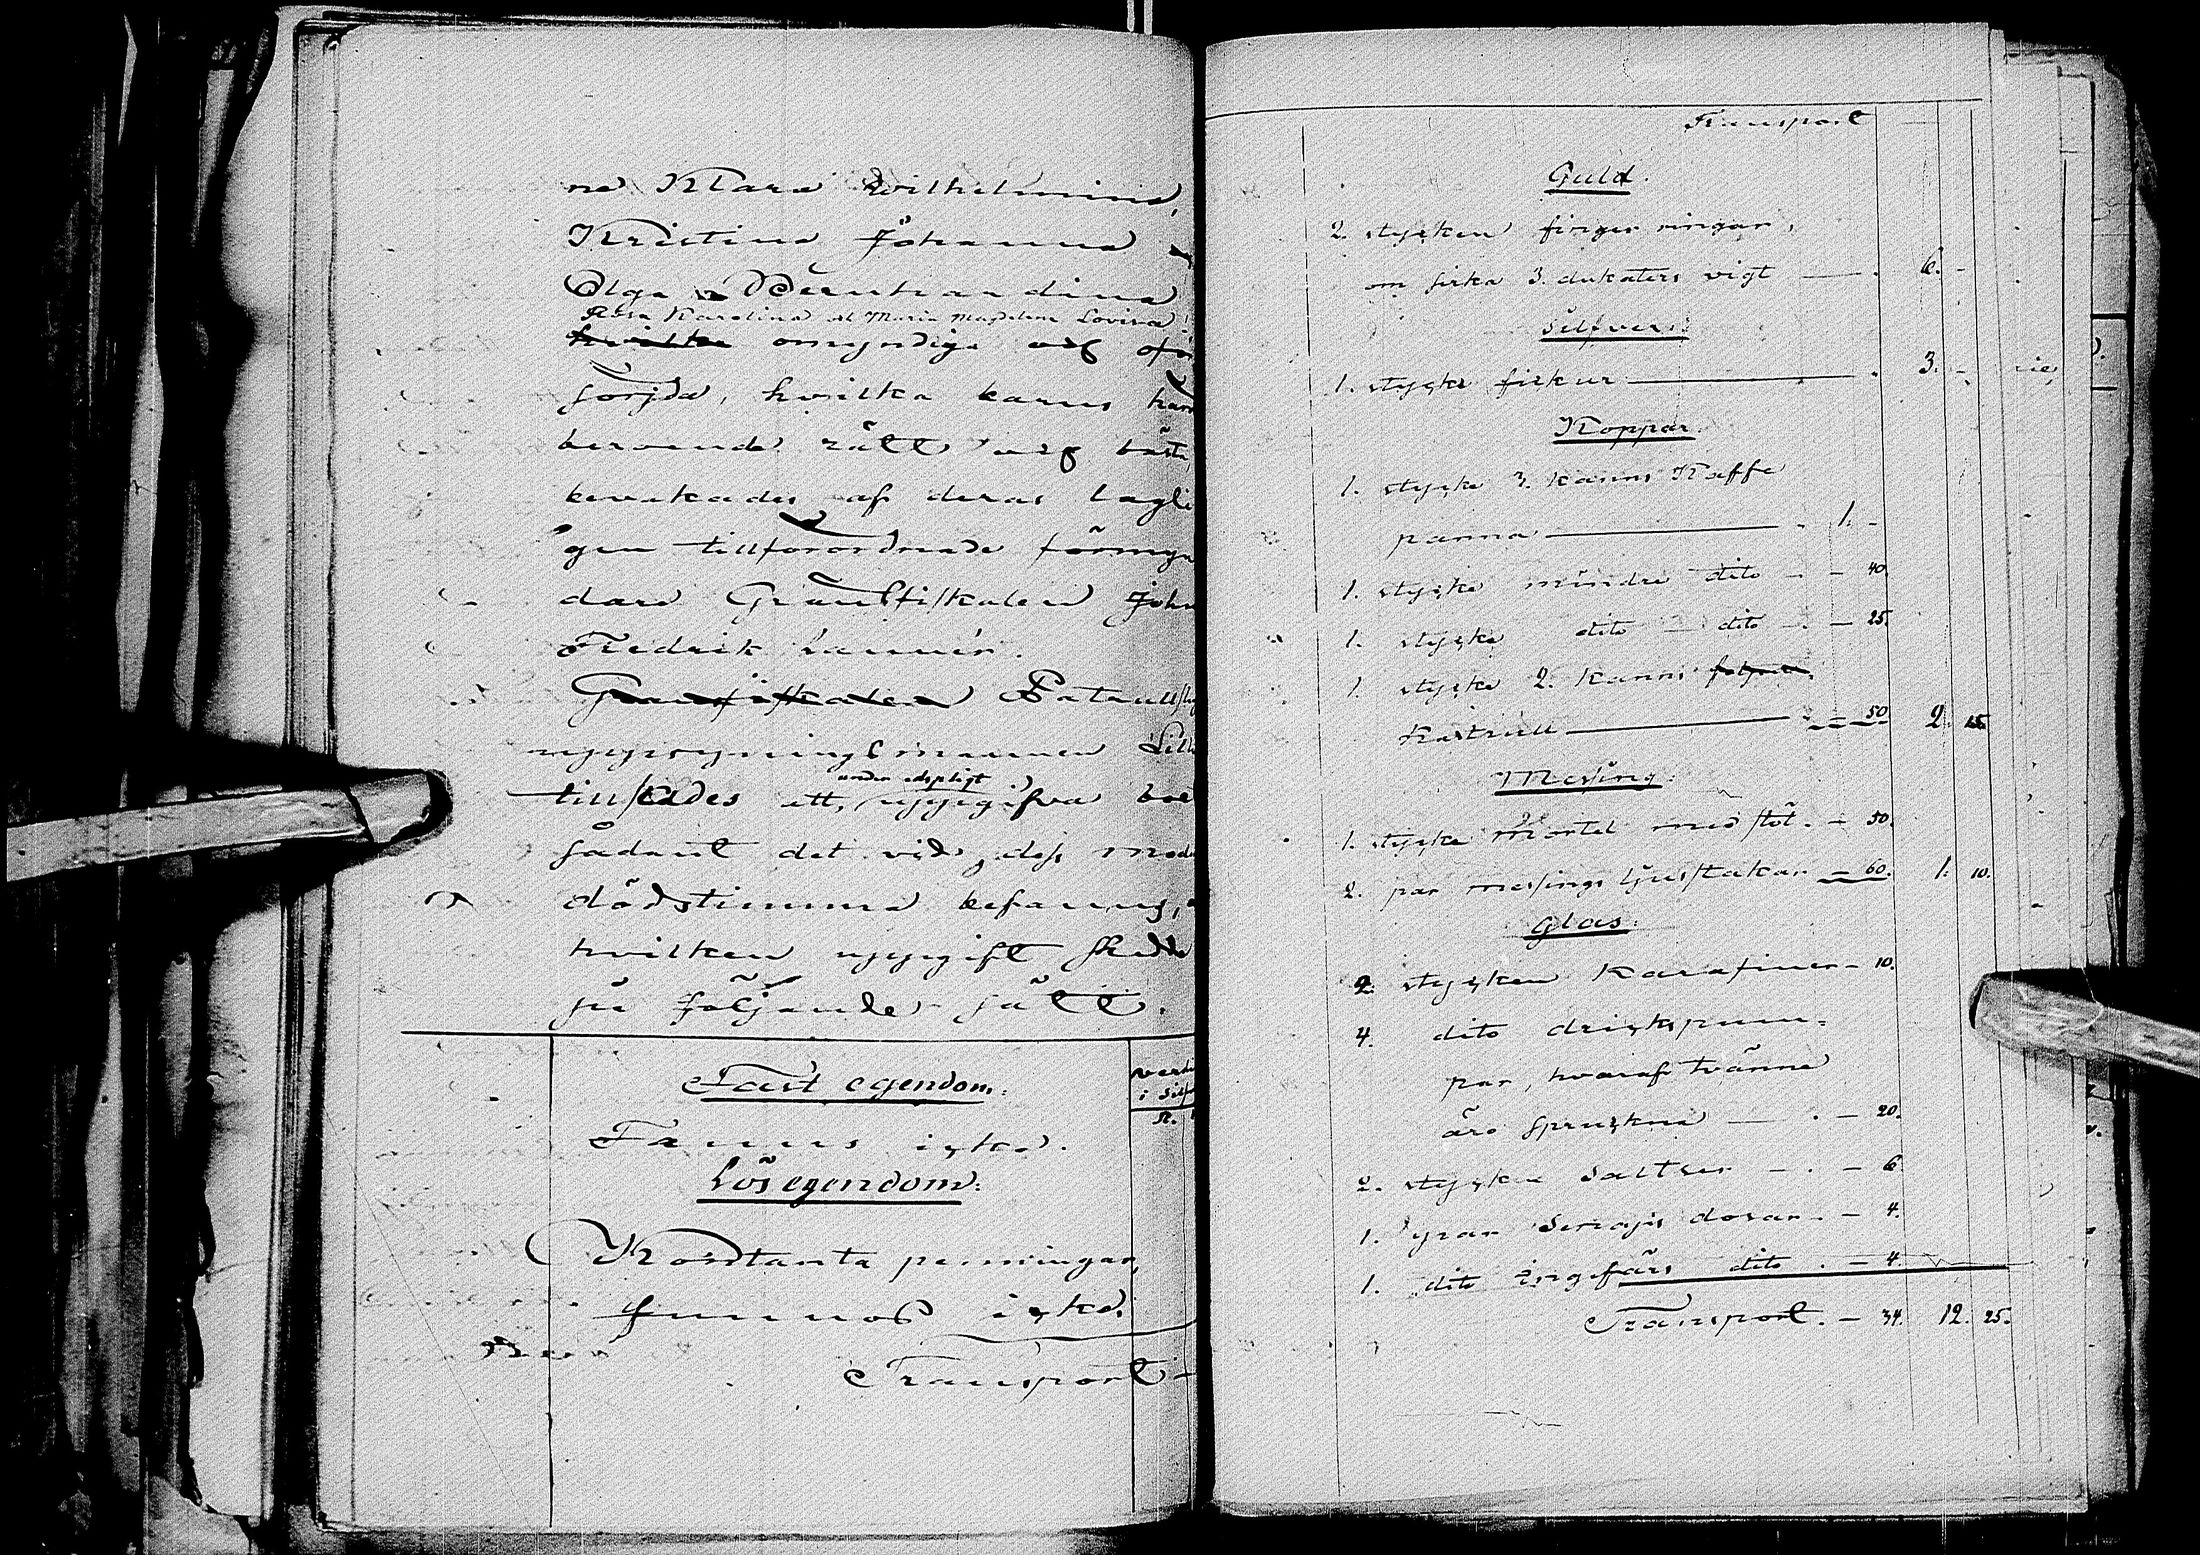 na Klara Wilhelmina,
Kristina Johanna
Olga Bernhardina
Rosa Karolina oc Maria Magdalena Lovisa
hvilka omyndiga och ofö
sörjda, hvilka barns här
beroende rätt och bästa
bevakades af deras lagli
gen tillförordnade förmyn
dare Gränsfiskalen Joh
Fredrik Lannér.
Gränsfiskalen Patrull
uppsyningsmannen Lill
under edspligt
tillsades att, uppgifva boe
sådant det vid dess
dödstimma befanns,
hvilken uppgift skedde
på följande sätt.
Fast egendom:
värde
i Silf
R.
Fanns icke.
Lösegendom:
Kontanta penningar
funnos icke.
Transport -
Transport
Guld.
2. stycken finger ringar,
om sirka 3. dukaters vigt — 6. -
Silfver:
1. stycke — 3. -
Koppar.
1. stycke 3. kanns Kaffe
panna — 1. -
1. stycke mindre dito - - 40
1. stycke dito dito - - 25.
1. stycke 2. kanns
kastrull — 50 2. 15
Messing:
1. stycke mortel med stöt. - 50.
2. par messings ljusstakar - 60. 1. 10.
Glas:
2. stycken karafiner - 10.
4. dito drickspum=
par, hvaraf tvänne
äro spruckna — - 20.
2. stycken Saltser - . - 6
1. par Senaps dosar - - 4.
1. dito ingefärs dito . - 4.
Transport. - 34. 12. 25.